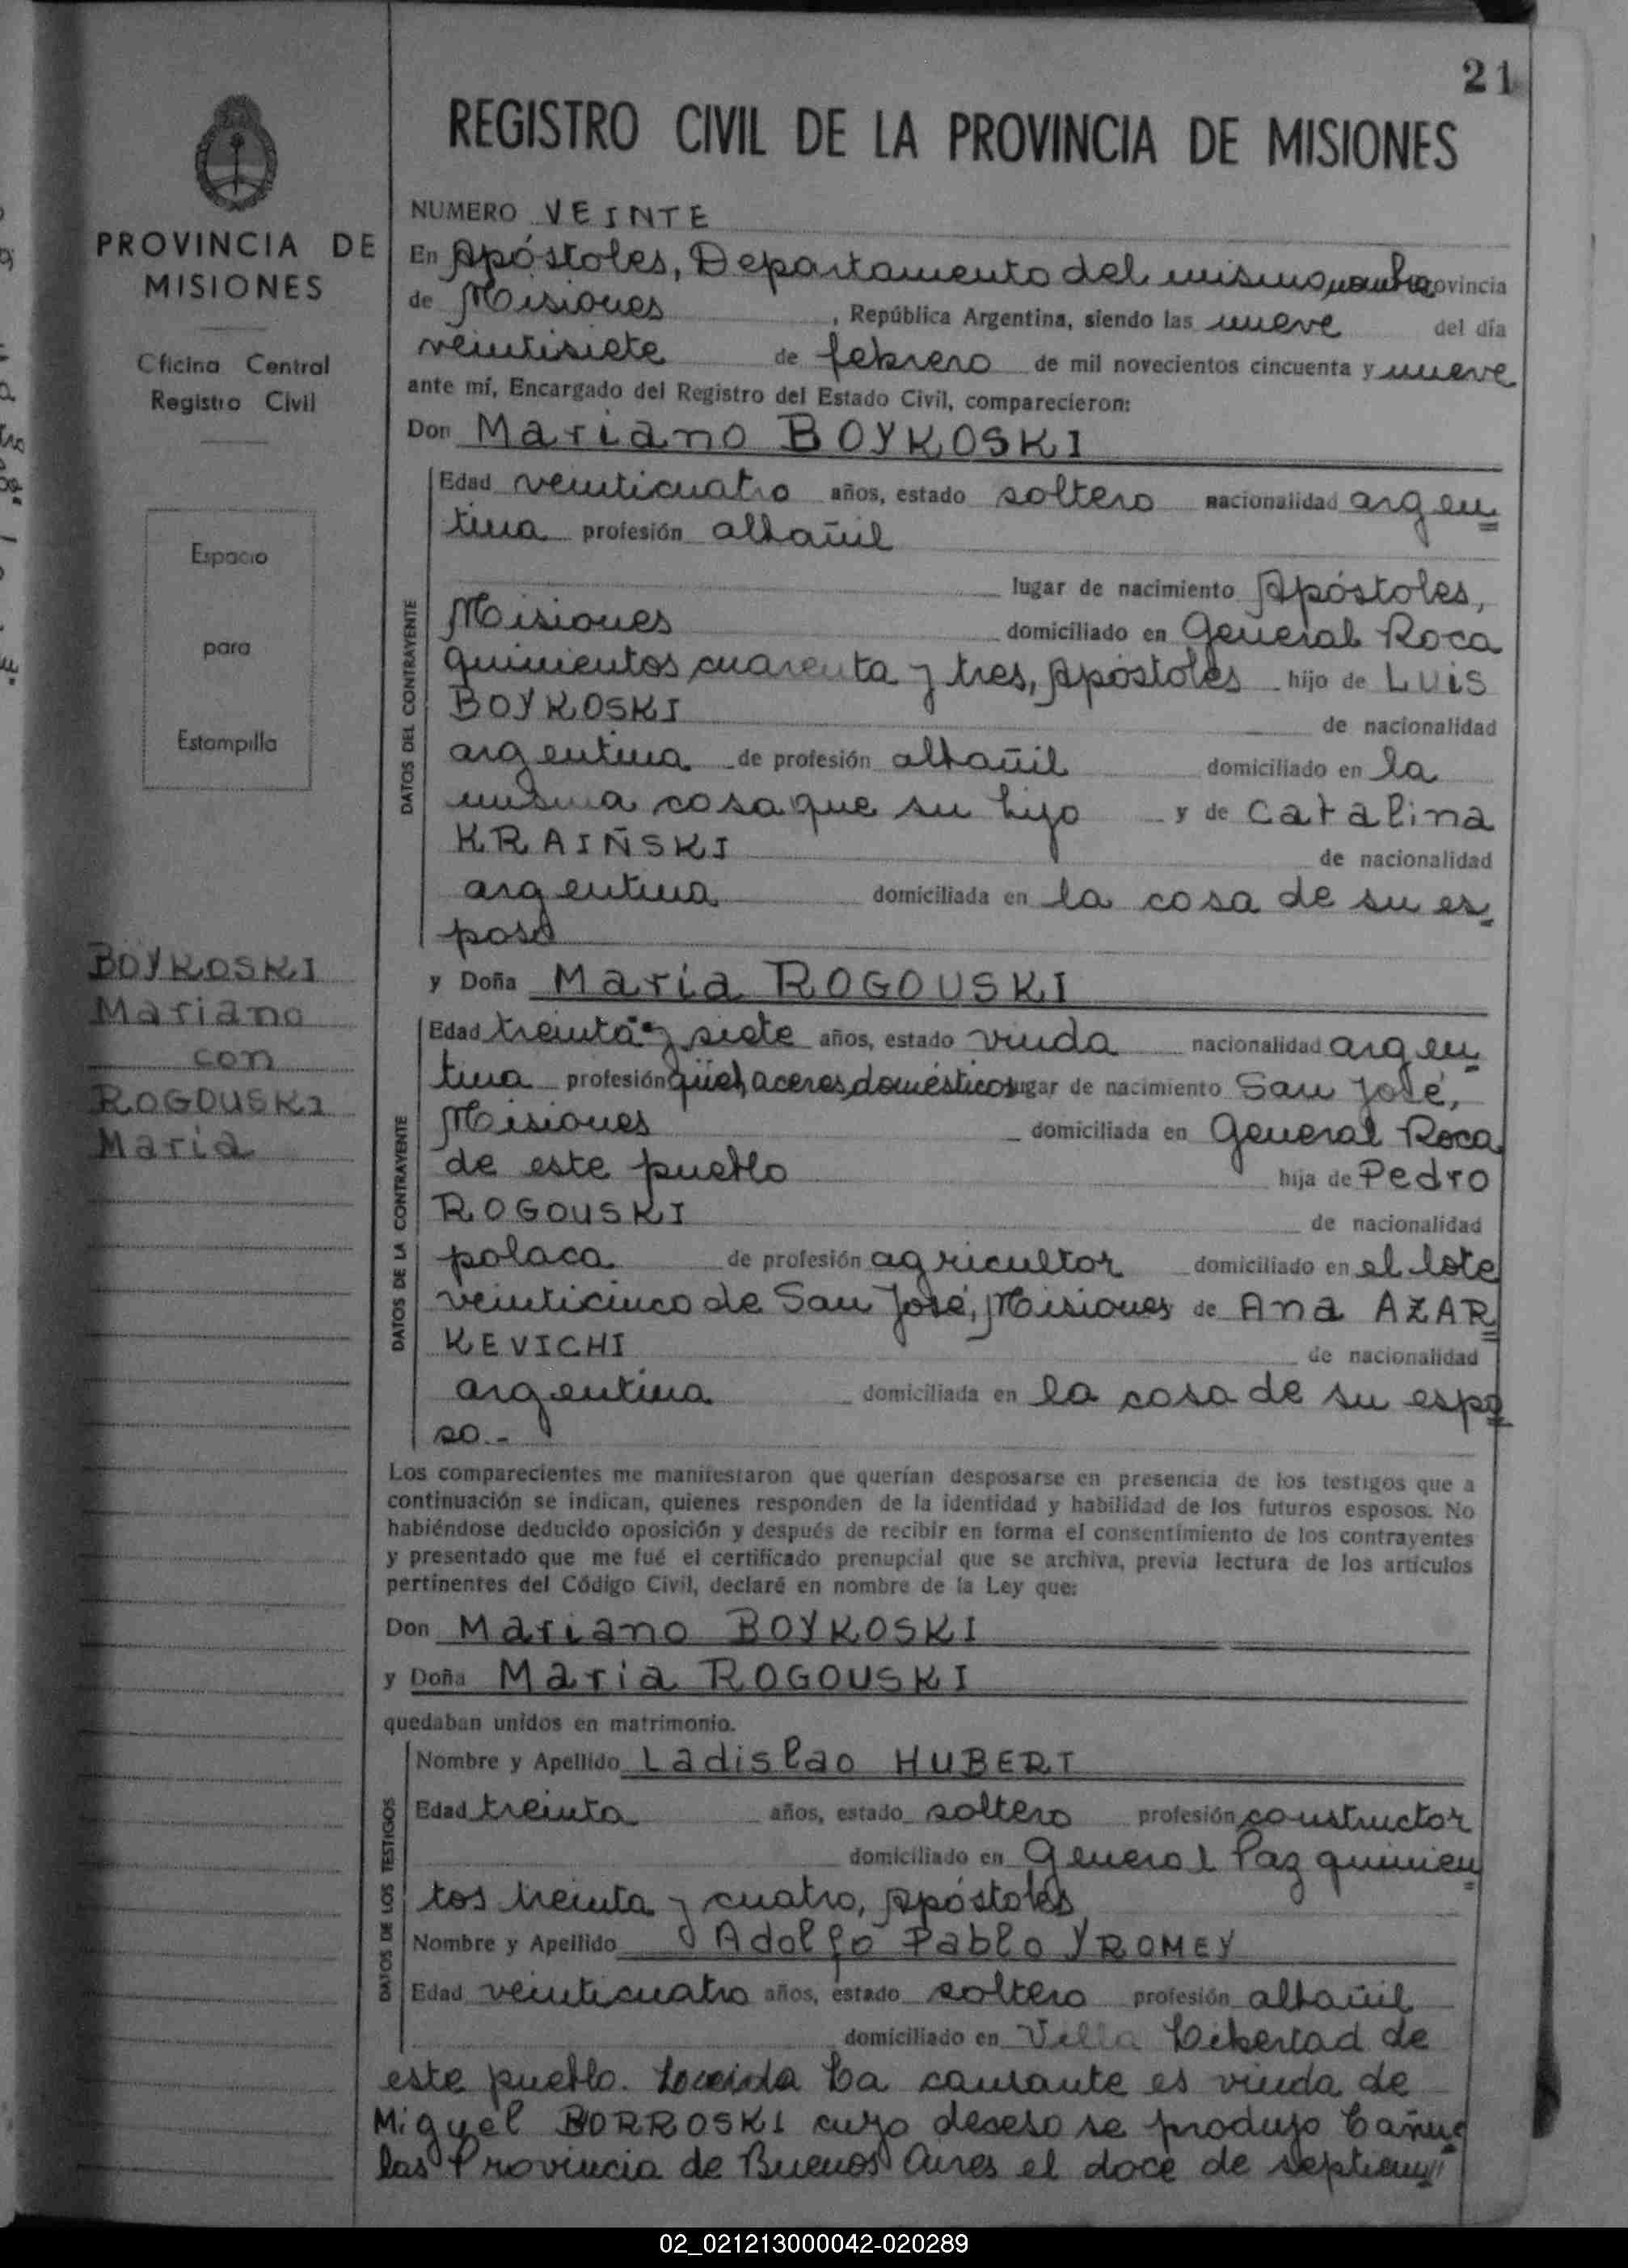 21
REGISTRO CIVIL DE LA PROVINCIA DE MISIONES
PROVINCIA DE
MISIONES
Oficina Central
Registro Civil
Espacio
para
Estampilla
BOYKOSKI
Mariano
con
ROGOUSKI
Maria
NUMERO VEINTE
En Apóstoles, Departamento del mismo nombre provincia
de Misiones, República Argentina, siendo las nueve del día
veintisiete de febrero de mil novecientos cincuenta y nueve
ante mí, Encargado del Registro del Estado Civil, comparecieron:
Don Mariano BOYKOSKI
DATOS DEL CONTRAYENTE
Edad veinticuatro años, estado soltero nacionalidad argen=
tina profesión albañil
lugar de nacimiento Apóstoles,
Misiones domiciliado en General Roca
quinientos cuarenta y tres, Apóstoles hijo de Luis
BOYKOSKI de nacionalidad
argentina de profesión albañil domiciliado en la
misma casa que su hijo y de Catalina
KRAIÑSKI de nacionalidad
argentina domiciliada en la casa de su es-
poso
y Doña Maria ROGOUSKI
DATOS DE LA CONTRAYENTE
Edad treinta y siete años, estado viuda nacionalidad argen-
tina profesión quehaceres domésticos lugar de nacimiento San José,
Misiones domiciliada en General Roca
de este pueblo hija de Pedro
ROGOUSKI de nacionalidad
polaca de profesión agricultor domiciliado en el lote
veinticinco de San José, Misiones de Ana AZAR=
KEVICHI de nacionalidad
argentina domiciliada en la casa de su espo
so.-
Los comparecientes me manifestaron que querían desposarse en presencia de los testigos que a
continuación se indican, quienes responden de la identidad y habilidad de los futuros esposos. No
habiéndose deducido oposición y después de recibir en forma el consentimiento de los contrayentes
y presentado que me fué el certificado prenupcial que se archiva, previa lectura de los artículos
pertinentes del Código Civil, declaré en nombre de la Ley que:
Don Mariano BOYKOSKI
y Doña Maria ROGOUSKI
quedaban unidos en matrimonio.
DATOS DE LOS TESTIGOS
Nombre y Apellido Ladislao HUBERT
Edad treinta años, estado soltero profesión constructor
domiciliado en General Paz quinien=
tos treinta y cuatro, Apóstoles
Nombre y Apellido Adolfo Pablo YROMEY
Edad veinticuatro años, estado soltero profesión albañil
domiciliado en Villa Libertad de
este pueblo. La causante es viuda de
Miguel BORROSKI cuyo deceso se produjo Cañue
las Provincia de Buenos Aires el doce de septiem
02_021213000042-020289